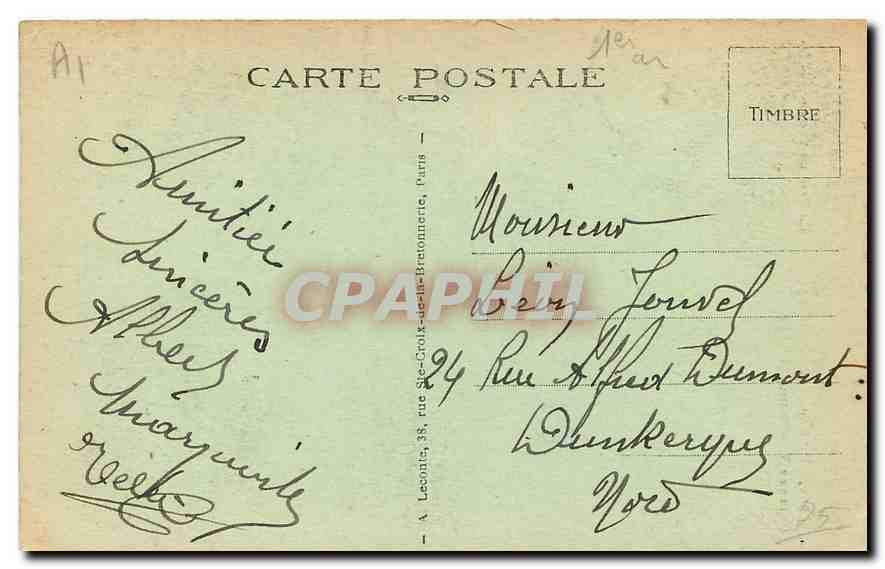 A1
1er ar
CARTE POSTALE
TIMBRE
Amitiés
Sincères
Albert
Marguerite
A. Leconte, 38, rue Ste-Croix-de-la-Bretonnerie, Paris
CPAPHIL
Monsieur
Léon Jouvel
24 Rue Alfred Dumont
Dunkerque
Nord
25